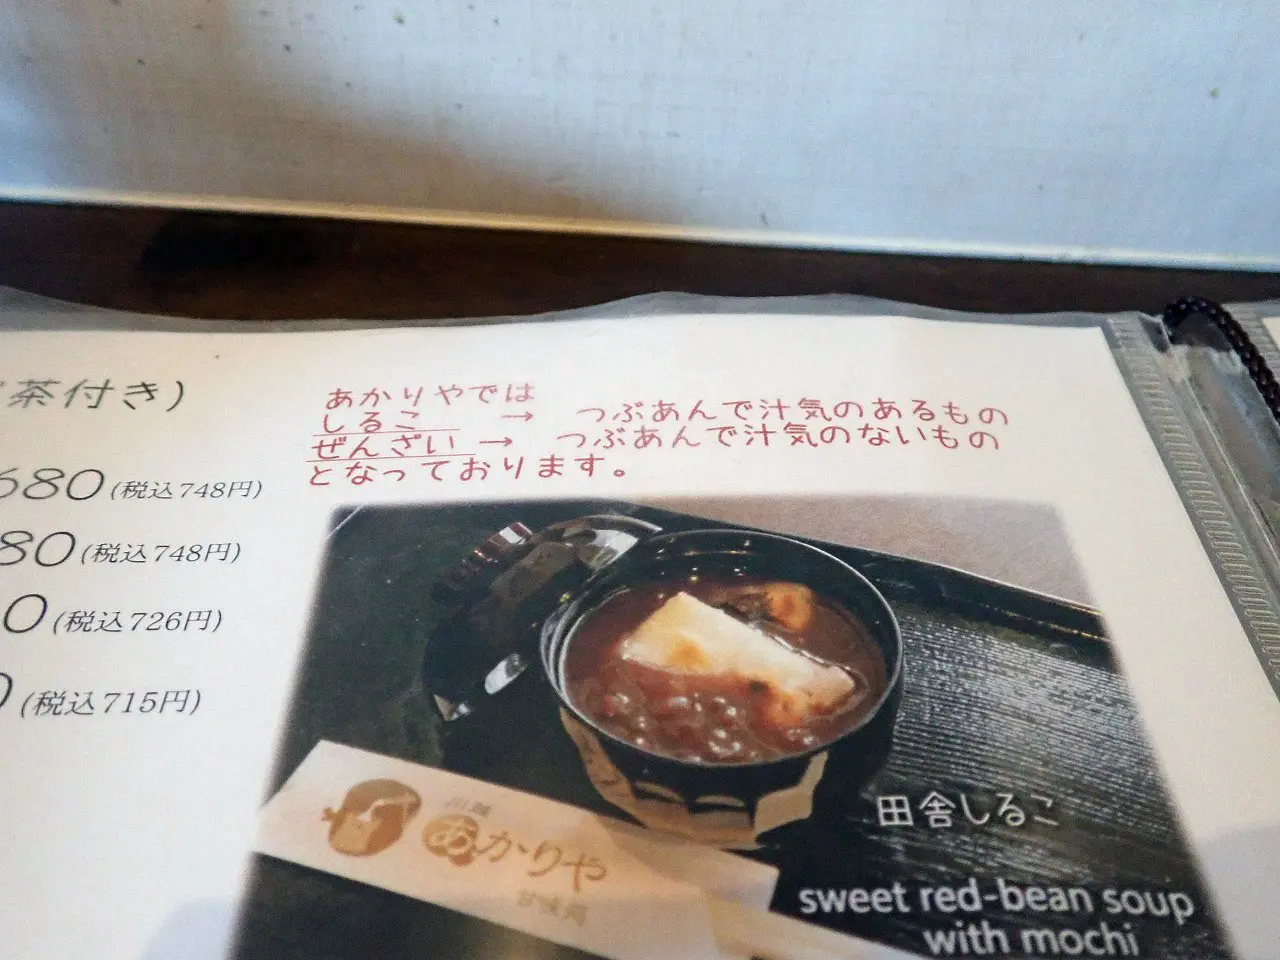 茶付き)
680(税込748円)
80(税込748円)
0(税込726円)
(税込715円)
あかりやでは
しるこ → つぶあんで汁気のあるもの
ぜんざい → つぶあんで汁気のないもの
となっております。
川越
あかりや
甘味処
田舎しるこ
sweet red-bean soup
with mochi